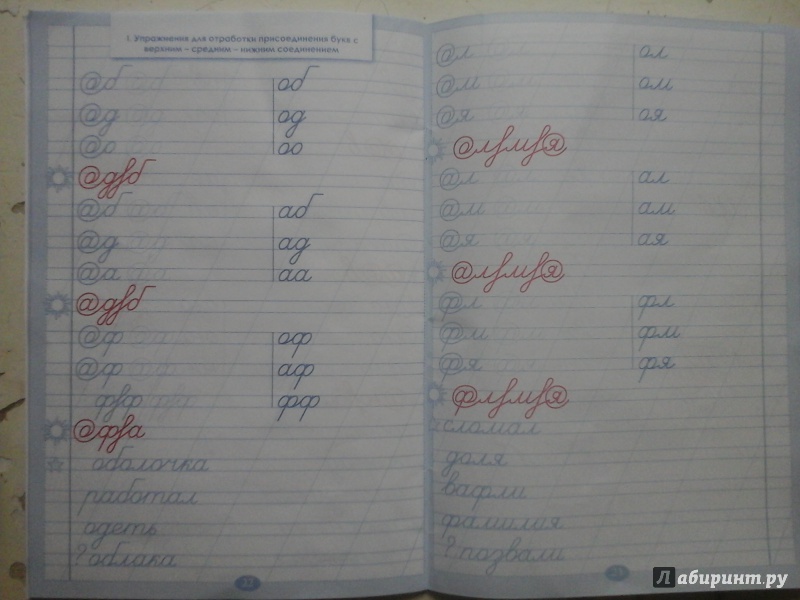 1. Упражнения для отработки присоединения букв с
верхним – средним – нижним соединением
об об
од од
оо оо
одб
аб аб
ад ад
аа аа
адб
оф оф
аф аф
фф фф
офа
оболочка
работал
одеть
? облака
33
ол ол
ом ом
оя оя
олмя
ал ал
ам ам
ая ая
алмя
фл фл
фм фм
фя фя
флмя
сломал
доля
вафли
фамилия
? позвали
Лабиринт.ру